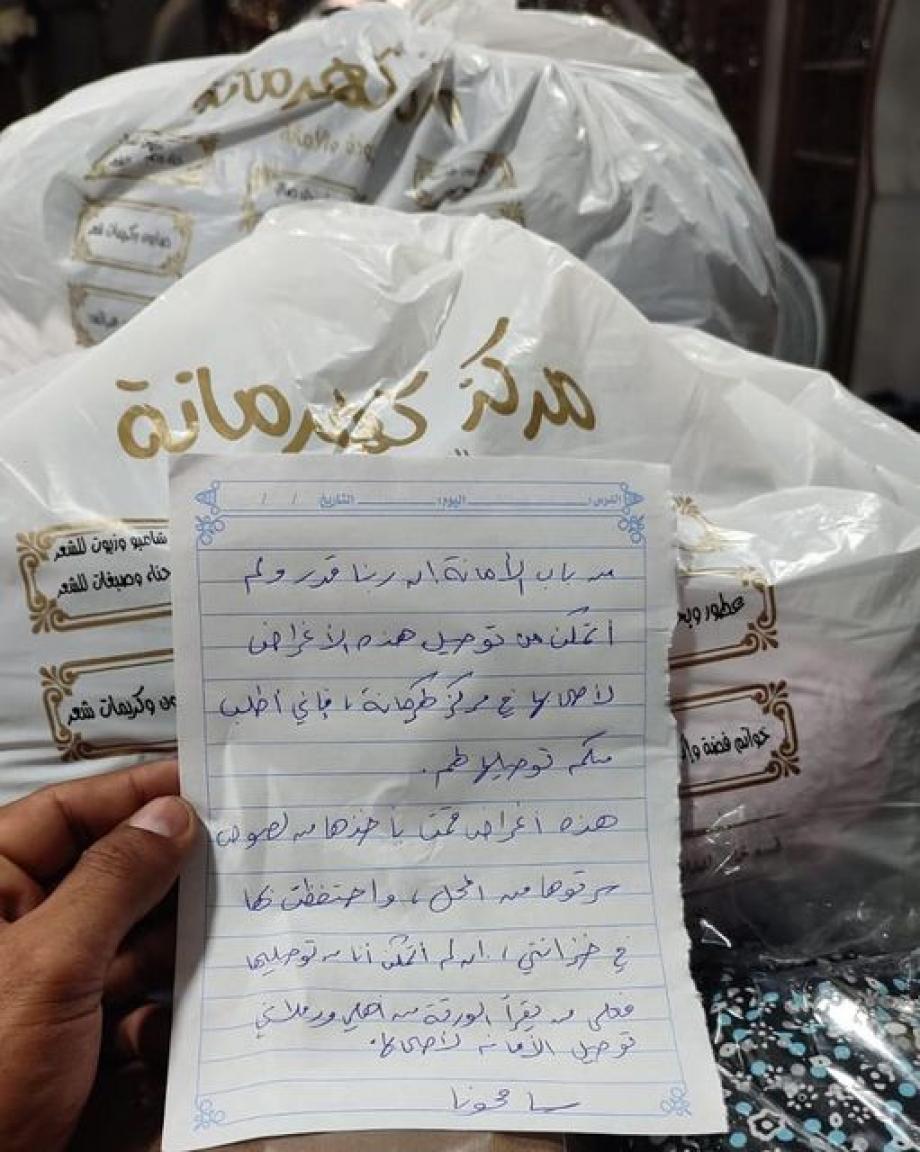 مركز كهرمانة
شامبو وزيوت للشعر
حناء وصبغات للشعر
وكريمات شعر
صابون وكريمات شعر
عطور
خواتم فضة
الدرس: اليوم: التاريخ / /
من باب الأمانة ان ربنا قدر ولم
أتمكن من توصيل هذه الأغراض
لأصحابها في مركز كهرمانة ، فإني أطلب
منكم توصيلها لهم.
هذه أغراض قمت بأخذها من لصوص
سرقوها من المحل ، واحتفظت بها
في خزانتي ، ان لم أتمكن أنا من توصيلها
فعلى من يقرأ الورقة من أهلي وزملائي
توصيل الأمانة لأصحابها.
سامحونا